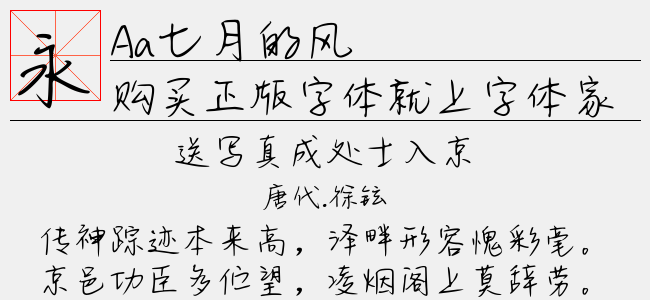 永
Aa七月的风
购买正版字体就上字体家
送写真成处士入京
唐代.徐铉
传神踪迹本来高，泽畔形容愧彩毫。
京邑功臣多伫望，凌烟阁上莫辞劳。